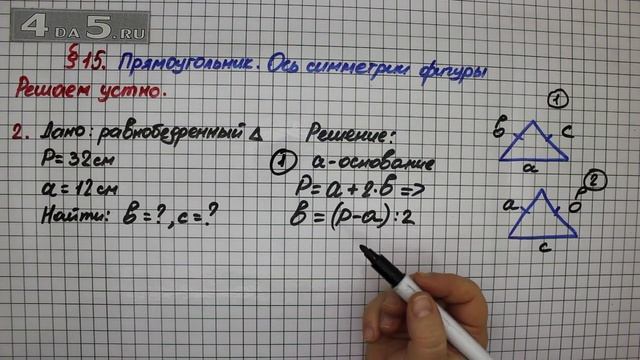 4ДА5.RU
§15. Прямоугольник. Ось симметрии фигуры
Решаем устно.
2. Дано: равнобедренный Δ
P=32см
a=12см
Найти: b=?, c=?
Решение:
① a-основание
P=a+2·b=>
b=(P-a):2
①
b
c
a
②
P
a
c